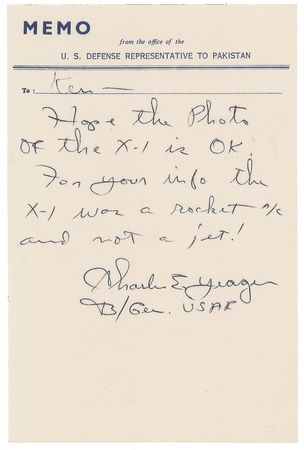 MEMO
from the office of the
U. S. DEFENSE REPRESENTATIVE TO PAKISTAN
To: Ken —
Hope the Photo
of the X-1 is OK.
For your info the
X-1 was a rocket a/c
and not a jet!
Charles E. Yeager
B/Gen. USAF